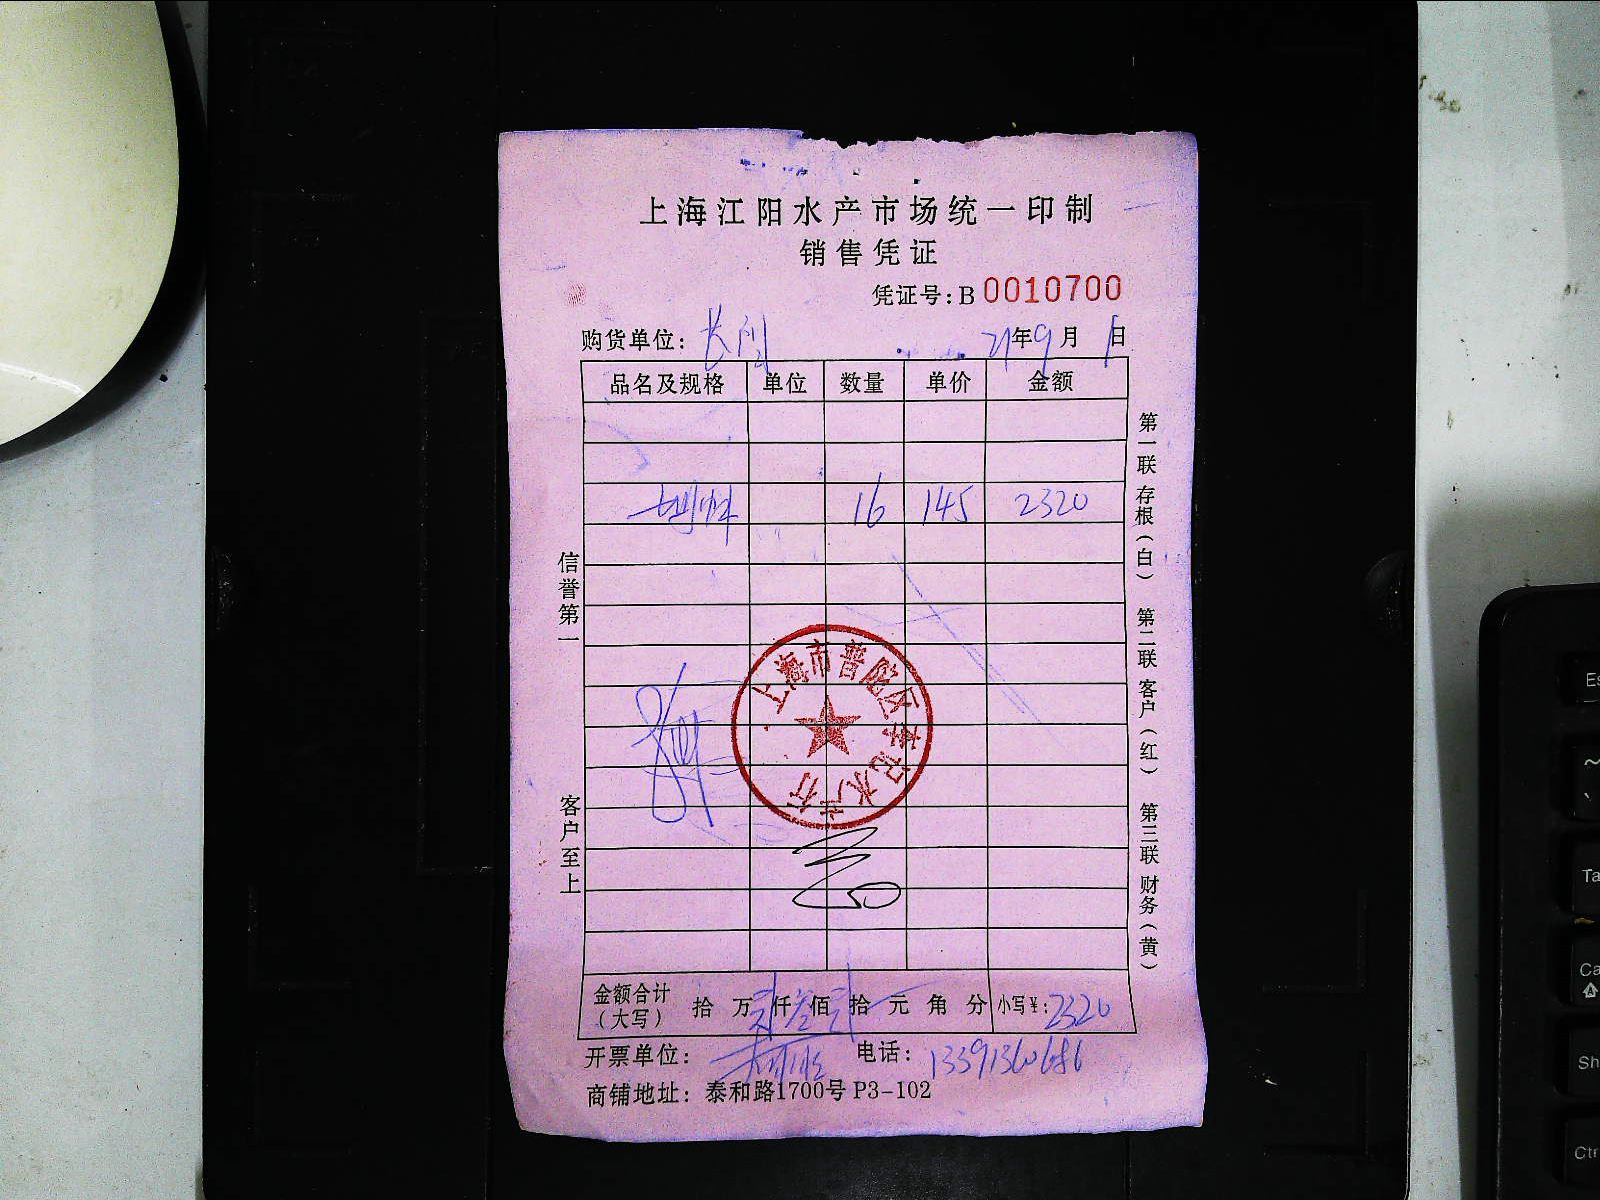 上海江阳水产市场统一印制
销售凭证
凭证号：B 0010700
购货单位：长
21年9月1日
品名及规格 单位 数量 单价 金额
16 145 2320
信誉第一
客户至上
第一联 存根（白） 第二联 客户（红） 第三联 财务（黄）
上海市普陀区 记水产行
金额合计（大写） 拾 万 贰 仟 叁 佰 贰 拾 元 角 分 小写¥：2320
开票单位：
电话：13391360686
商铺地址：泰和路1700号 P3-102
Es
~
Ta
Ca
A
Sh
Ctr